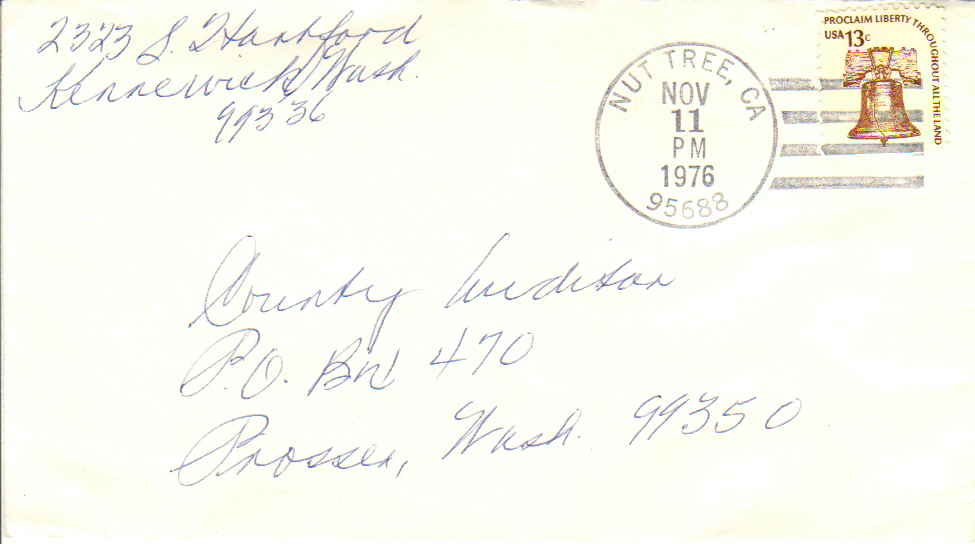 2323 S. Hartford
Kennewick, Wash.
99336
NUT TREE, CA
NOV
11
PM
1976
95688
PROCLAIM LIBERTY THROUGHOUT ALL THE LAND
USA 13c
County Auditor
P.O. Box 470
Prosser, Wash. 99350